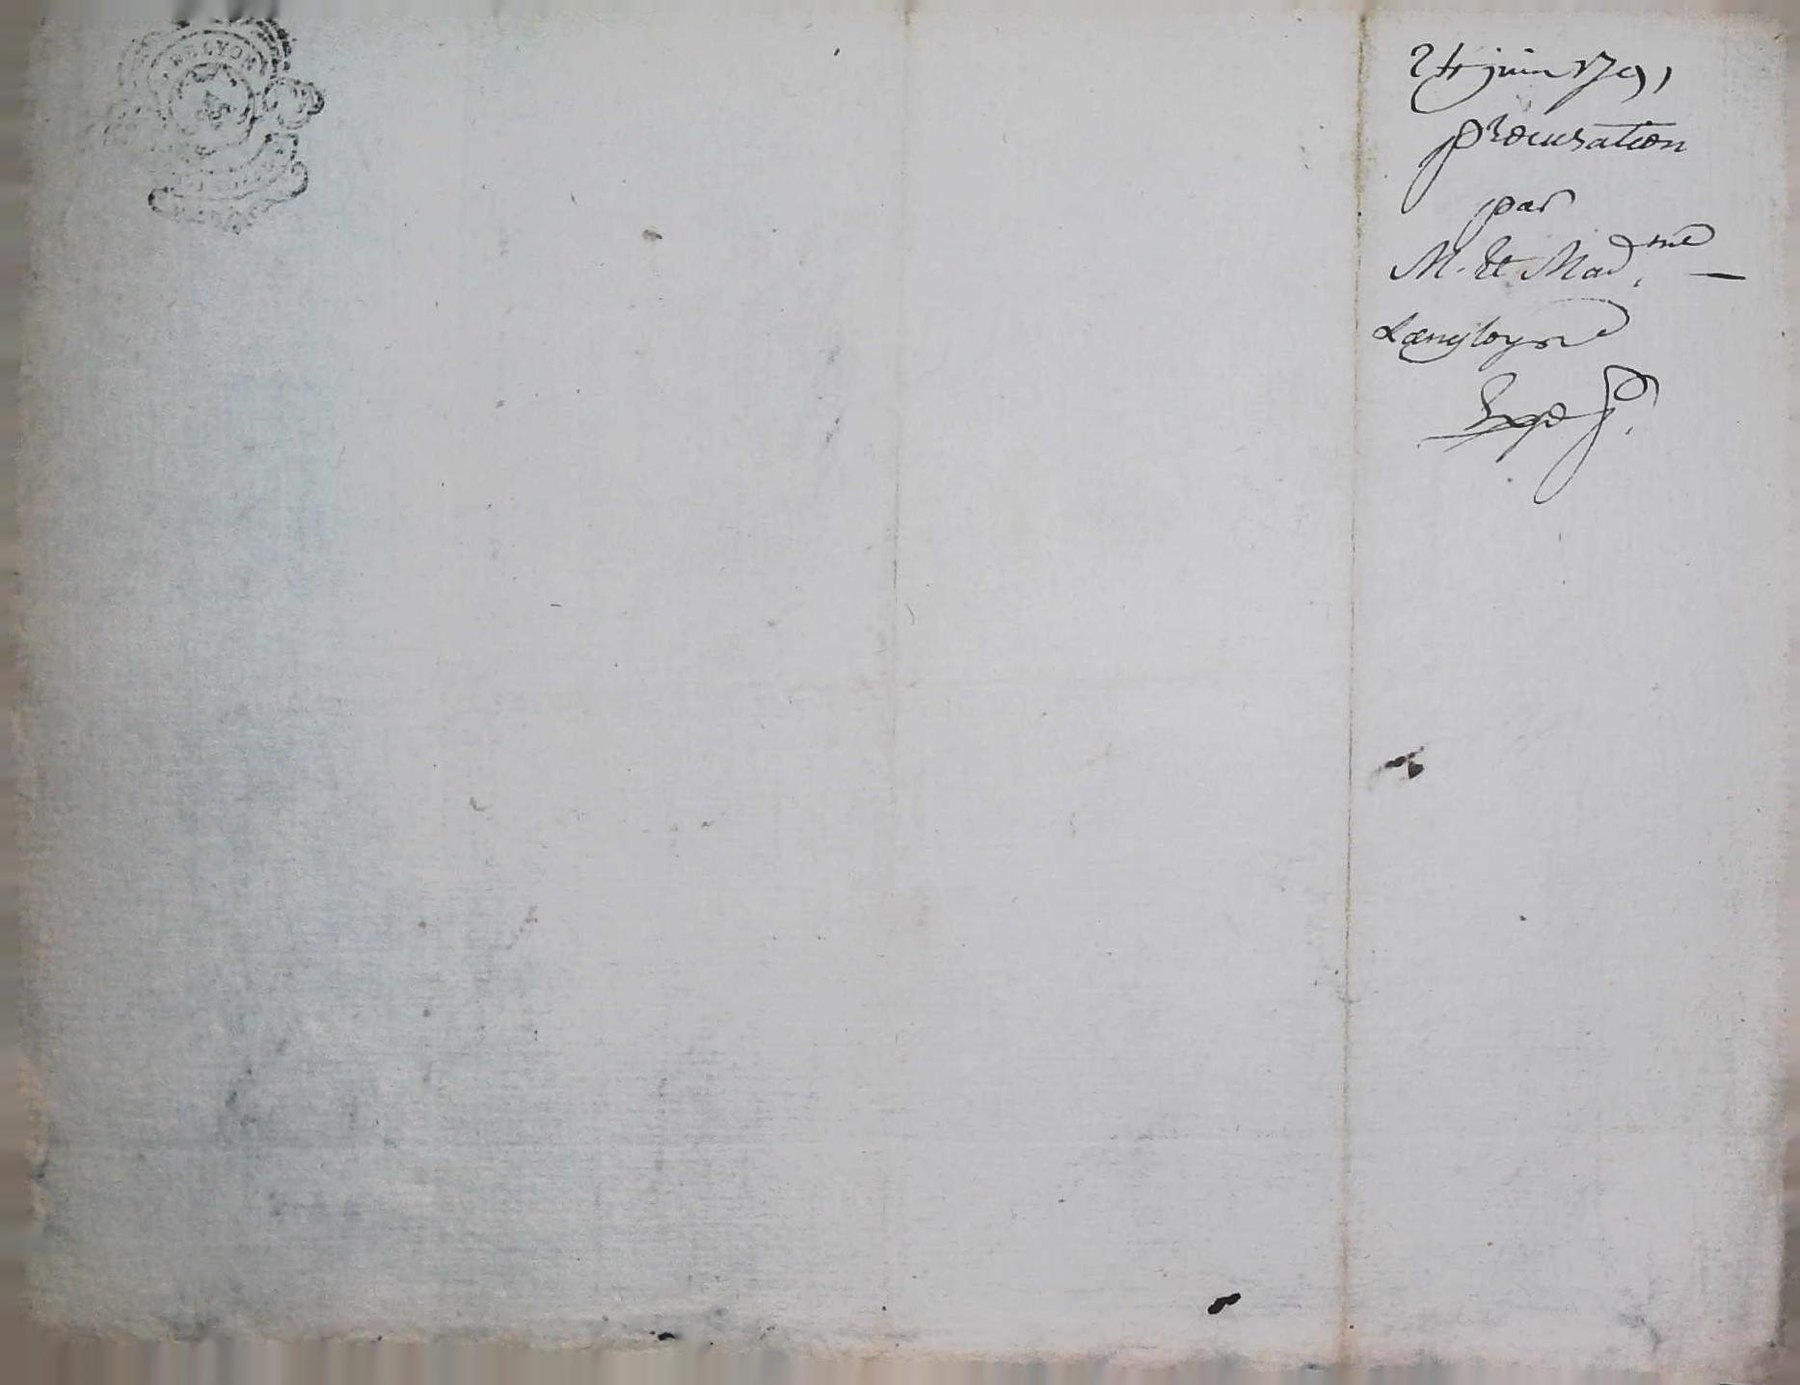 DE LYON
24 juin 1791
procuration
par
M. Et Mad.me —
Langloys
Exp